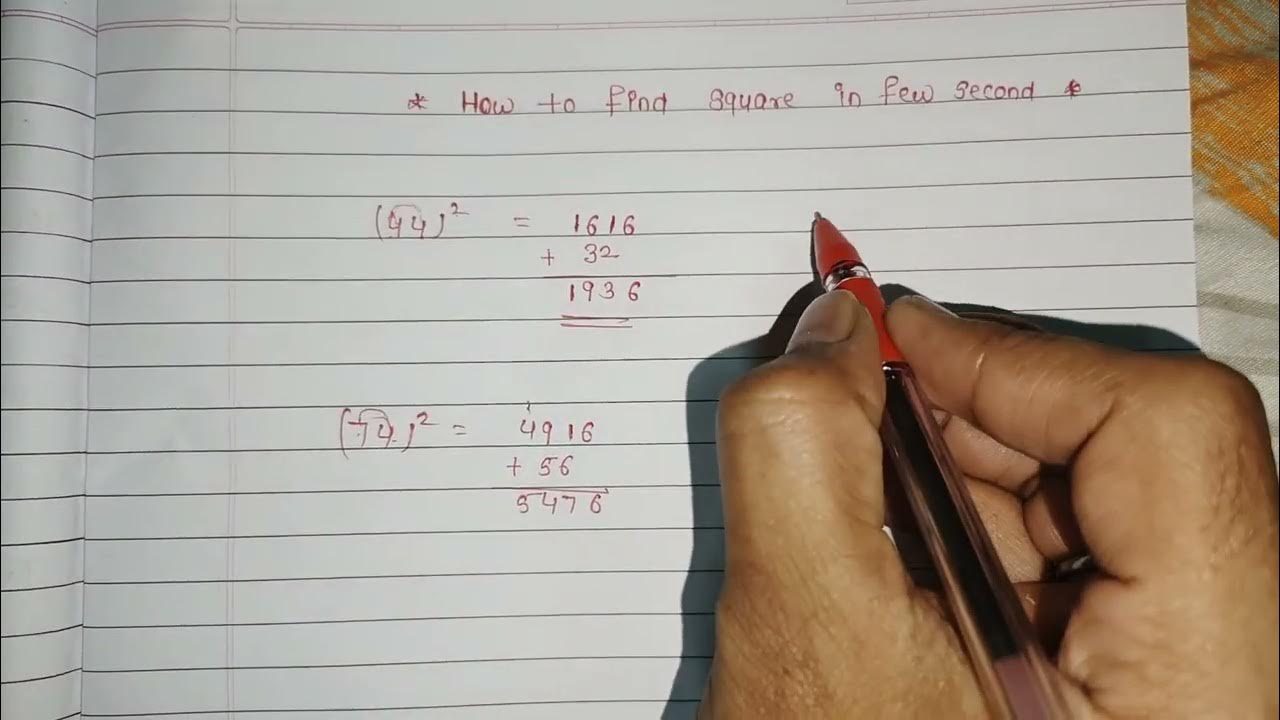 * How to find square in few second *
(44)² = 1616
+ 32
1936
1
(74)² = 4916
+ 56
5476